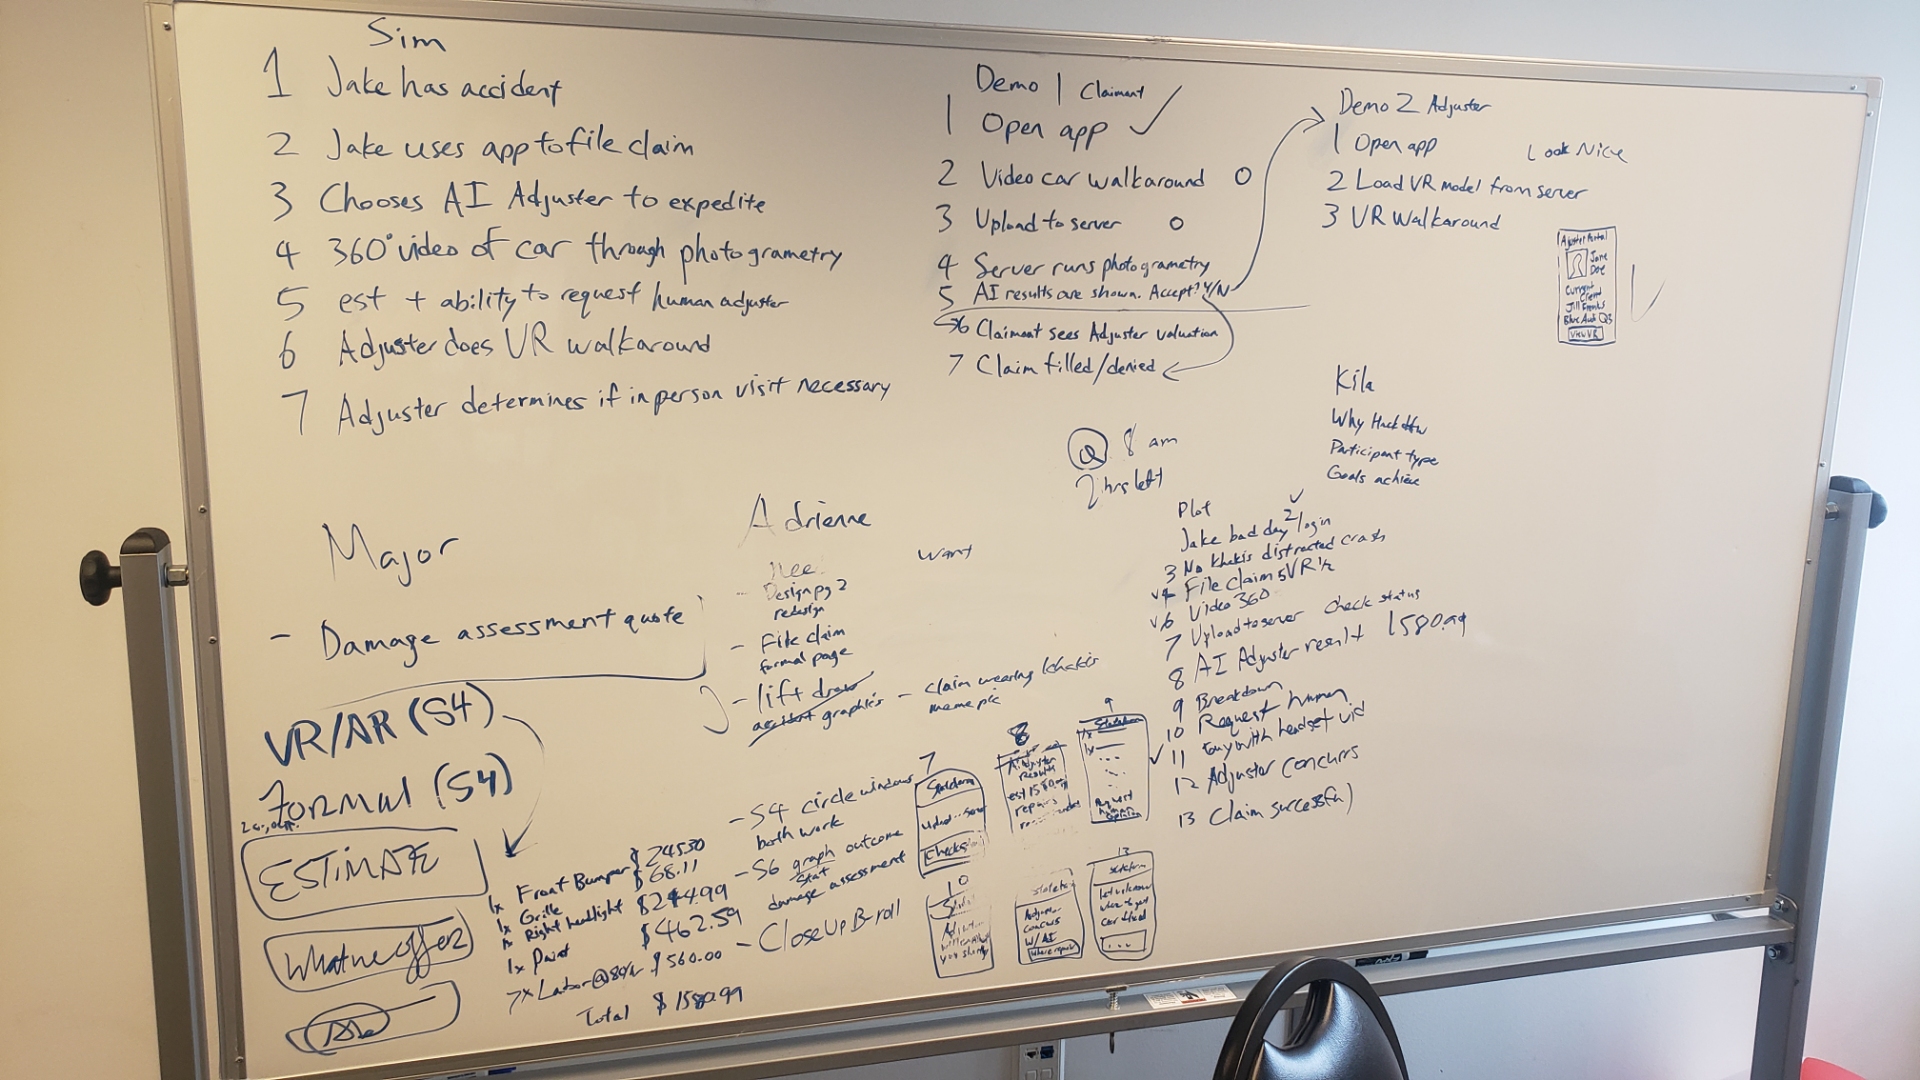 Sim
1 Jake has accident
2 Jake uses app to file claim
3 Chooses AI Adjuster to expedite
4 360° video of car through photogrametry
5 est + ability to request human adjuster
6 Adjuster does VR walkaround
7 Adjuster determines if in person visit necessary
Demo 1 Claimant
1 Open app ✓
2 Video car walkaround O
3 Upload to server O
4 Server runs photogrametry
5 AI results are shown. Accept? Y/N
6 Claimant sees Adjuster valuation
7 Claim filled/denied
Demo 2 Adjuster
1 Open app
Look Nice
2 Load VR model from server
3 VR Walkaround
Ajuster Portal
Jane
Doe
Current
Client
Jill
View VR
Kila
Why Hack
Participant type
Goals achieve
@ 8 am
2 hrs left
Major
- Damage assessment quote
VR/AR (S4)
Formal (S4)
ESTIMATE
What we offer
Adrienne
Need
- Design pg 2
redesign
- File claim
formal page
- lift draw
accident graphics
Want
- Claim wearing khakis
meme pic
- S4 circle windows
both work
- S6 graph outcome
stat
damage assessment
- Close Up B-roll
1x Front Bumper $245.30
1x Grille $68.11
1x Right headlight $244.99
1x Paint $462.59
7x Labor@80/hr $560.00
Total $1580.99
Plot
Jake bad day 2 login
3 No khakis distracted crash
4 File claim 5 VR 1/2
6 Video 360
7 Upload to server check status
8 AI Adjuster result 1580.99
9 Breakdown
10 Request human
11 Tony with headset vid
12 Adjuster concurs
13 Claim successful
7
Statefarm
Upload
Check
8
AI Adjuster
Results
est 1580.99
repairs
9
Statefarm
1x
1x
Request
human
opinion
10
you shortly
Adjuster
concurs
W/ AI
Where repair
13
Statefarm
Let us know
where to get
car fixed
...